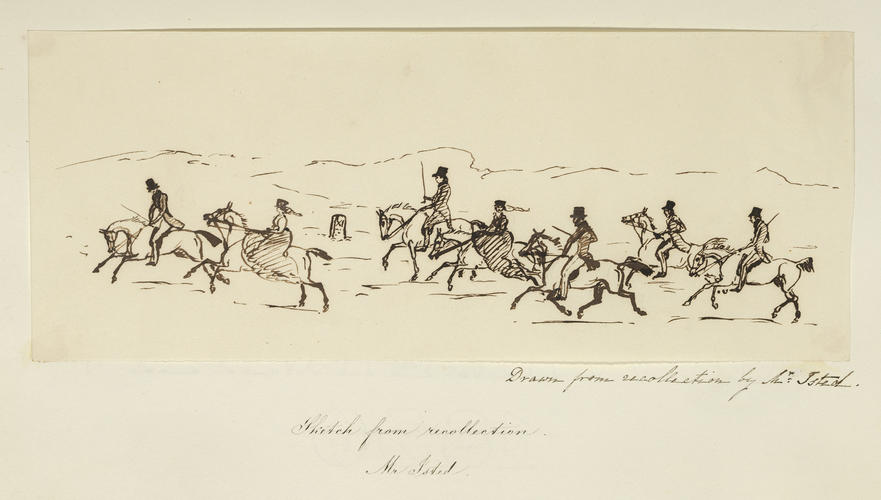 Drawn from recollection by Mr. Isted.
Sketch from recollection.
Mr Isted.